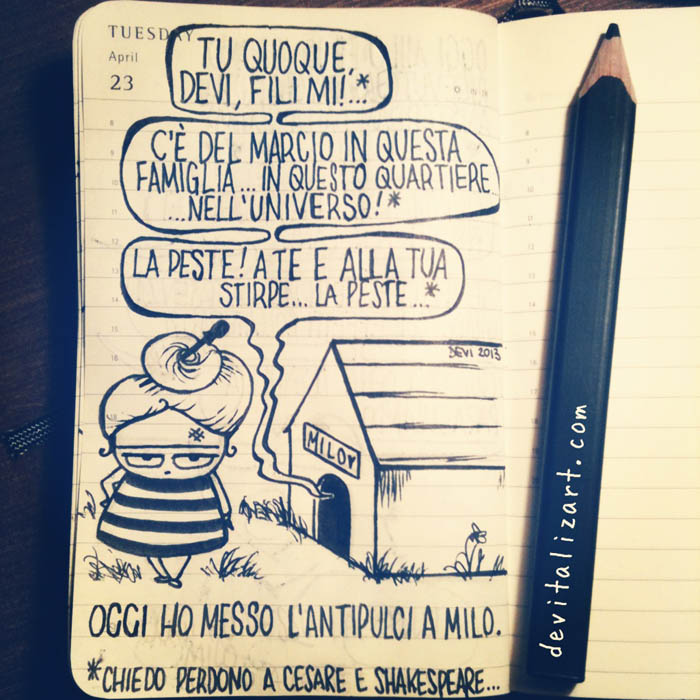 TUESDAY
April
23
TU QUOQUE,
DEVI, FILI MI!...*
C'È DEL MARCIO IN QUESTA
FAMIGLIA... IN QUESTO QUARTIERE...
...NELL'UNIVERSO!*
LA PESTE! A TE E ALLA TUA
STIRPE... LA PESTE...*
DEVI 2013
MILO
OGGI HO MESSO L'ANTIPULCI A MILO.
*CHIEDO PERDONO A CESARE E SHAKESPEARE...
devitalizart.com